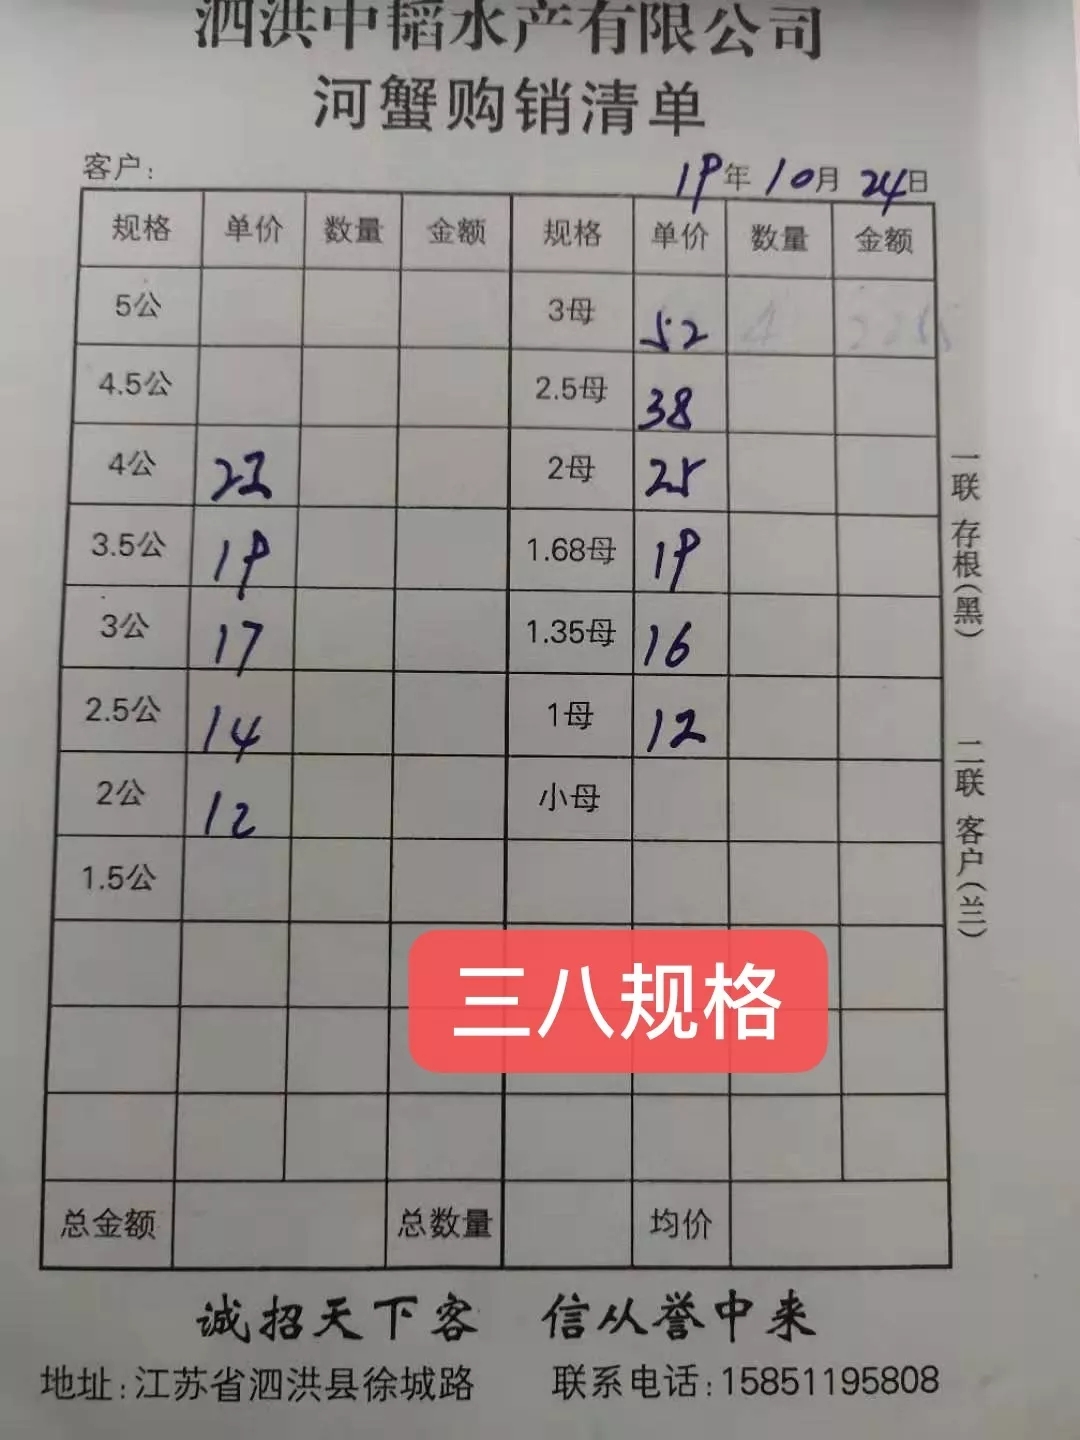 泗洪中韬水产有限公司
河蟹购销清单
客户: 19年10月24日
规格 单价 数量 金额 规格 单价 数量 金额
5公 3母 52
4.5公 2.5母 38
4公 23 2母 25
3.5公 19 1.68母 19
3公 17 1.35母 16
2.5公 14 1母 12
2公 12 小母
1.5公
三八规格
总金额 总数量 均价
一联 存根(黑) 二联 客户(兰)
诚招天下客 信从誉中来
地址:江苏省泗洪县徐城路 联系电话:15851195808